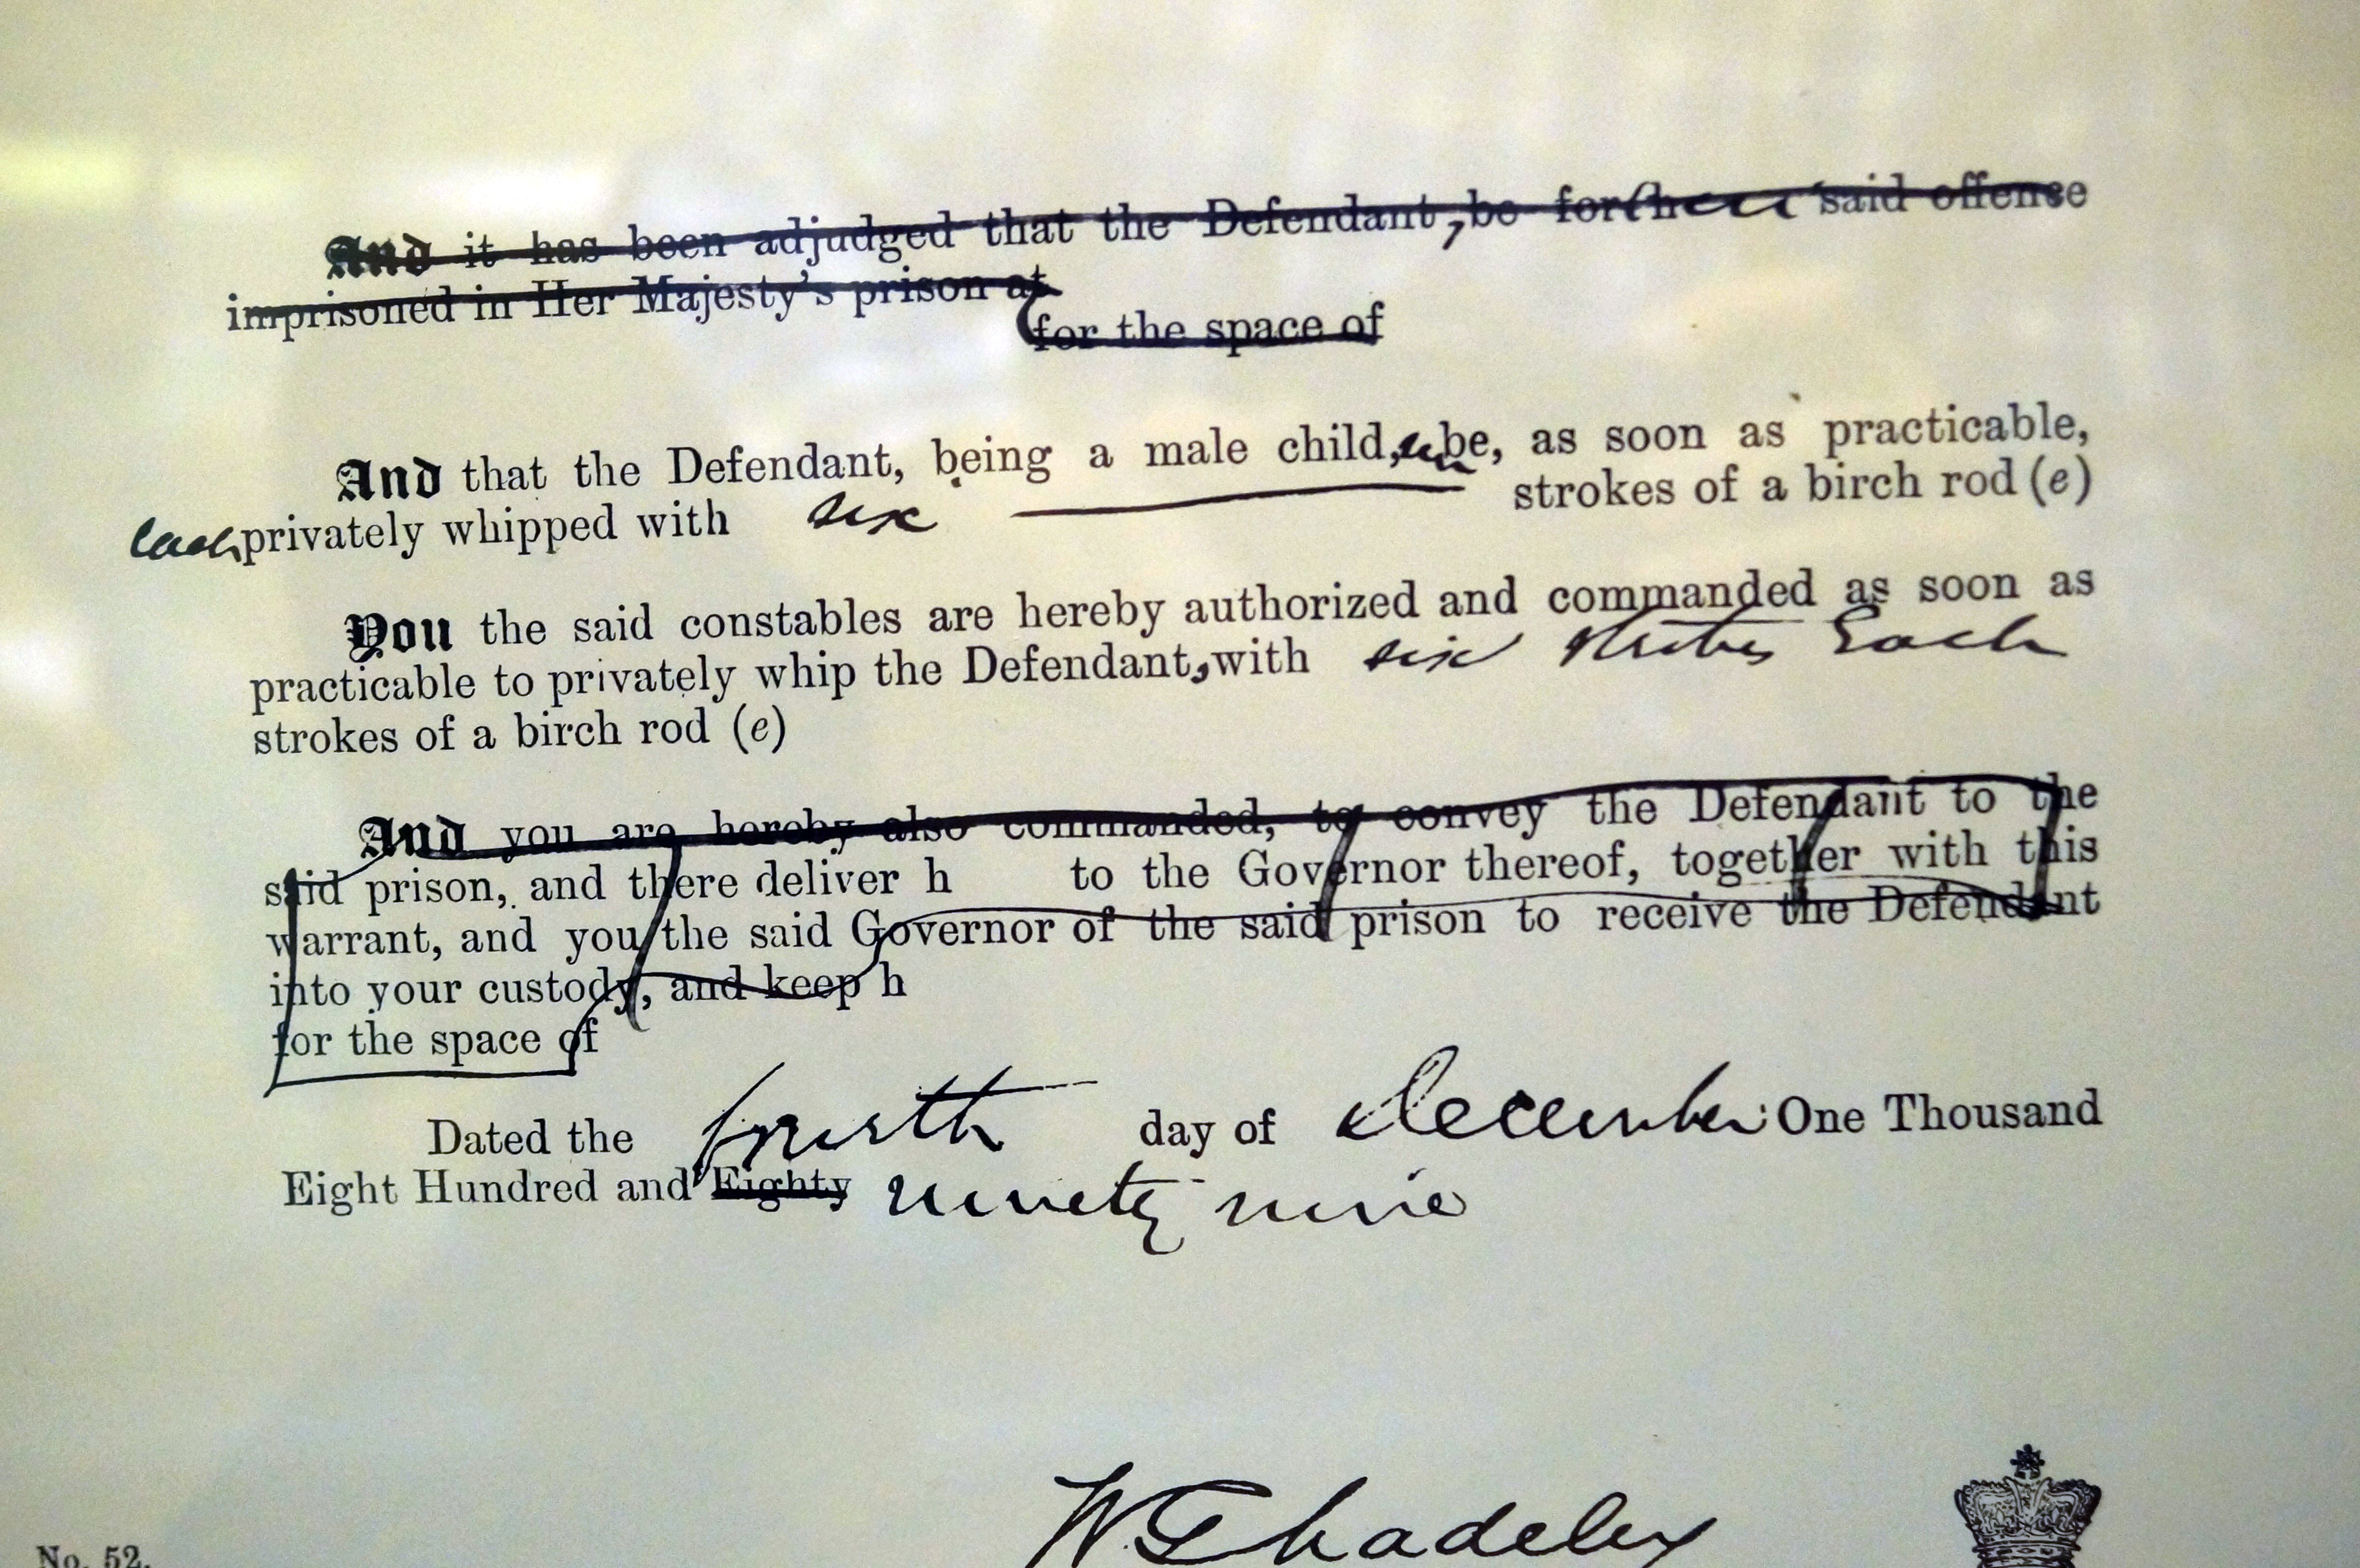 And it has been adjudged that the Defendant, be for their said offense
imprisoned in Her Majesty's prison at
for the space of
And that the Defendant, being a male child, be, as soon as practicable,
each privately whipped with six strokes of a birch rod (e)
You the said constables are hereby authorized and commanded as soon as
practicable to privately whip the Defendants, with six strokes Each
strokes of a birch rod (e)
And you are hereby also commanded, to convey the Defendant to the
said prison, and there deliver h to the Governor thereof, together with this
warrant, and you the said Governor of the said prison to receive the Defendant
into your custody, and keep h
for the space of
Dated the fourth day of December One Thousand
Eight Hundred and Eighty ninety nine
No. 52.